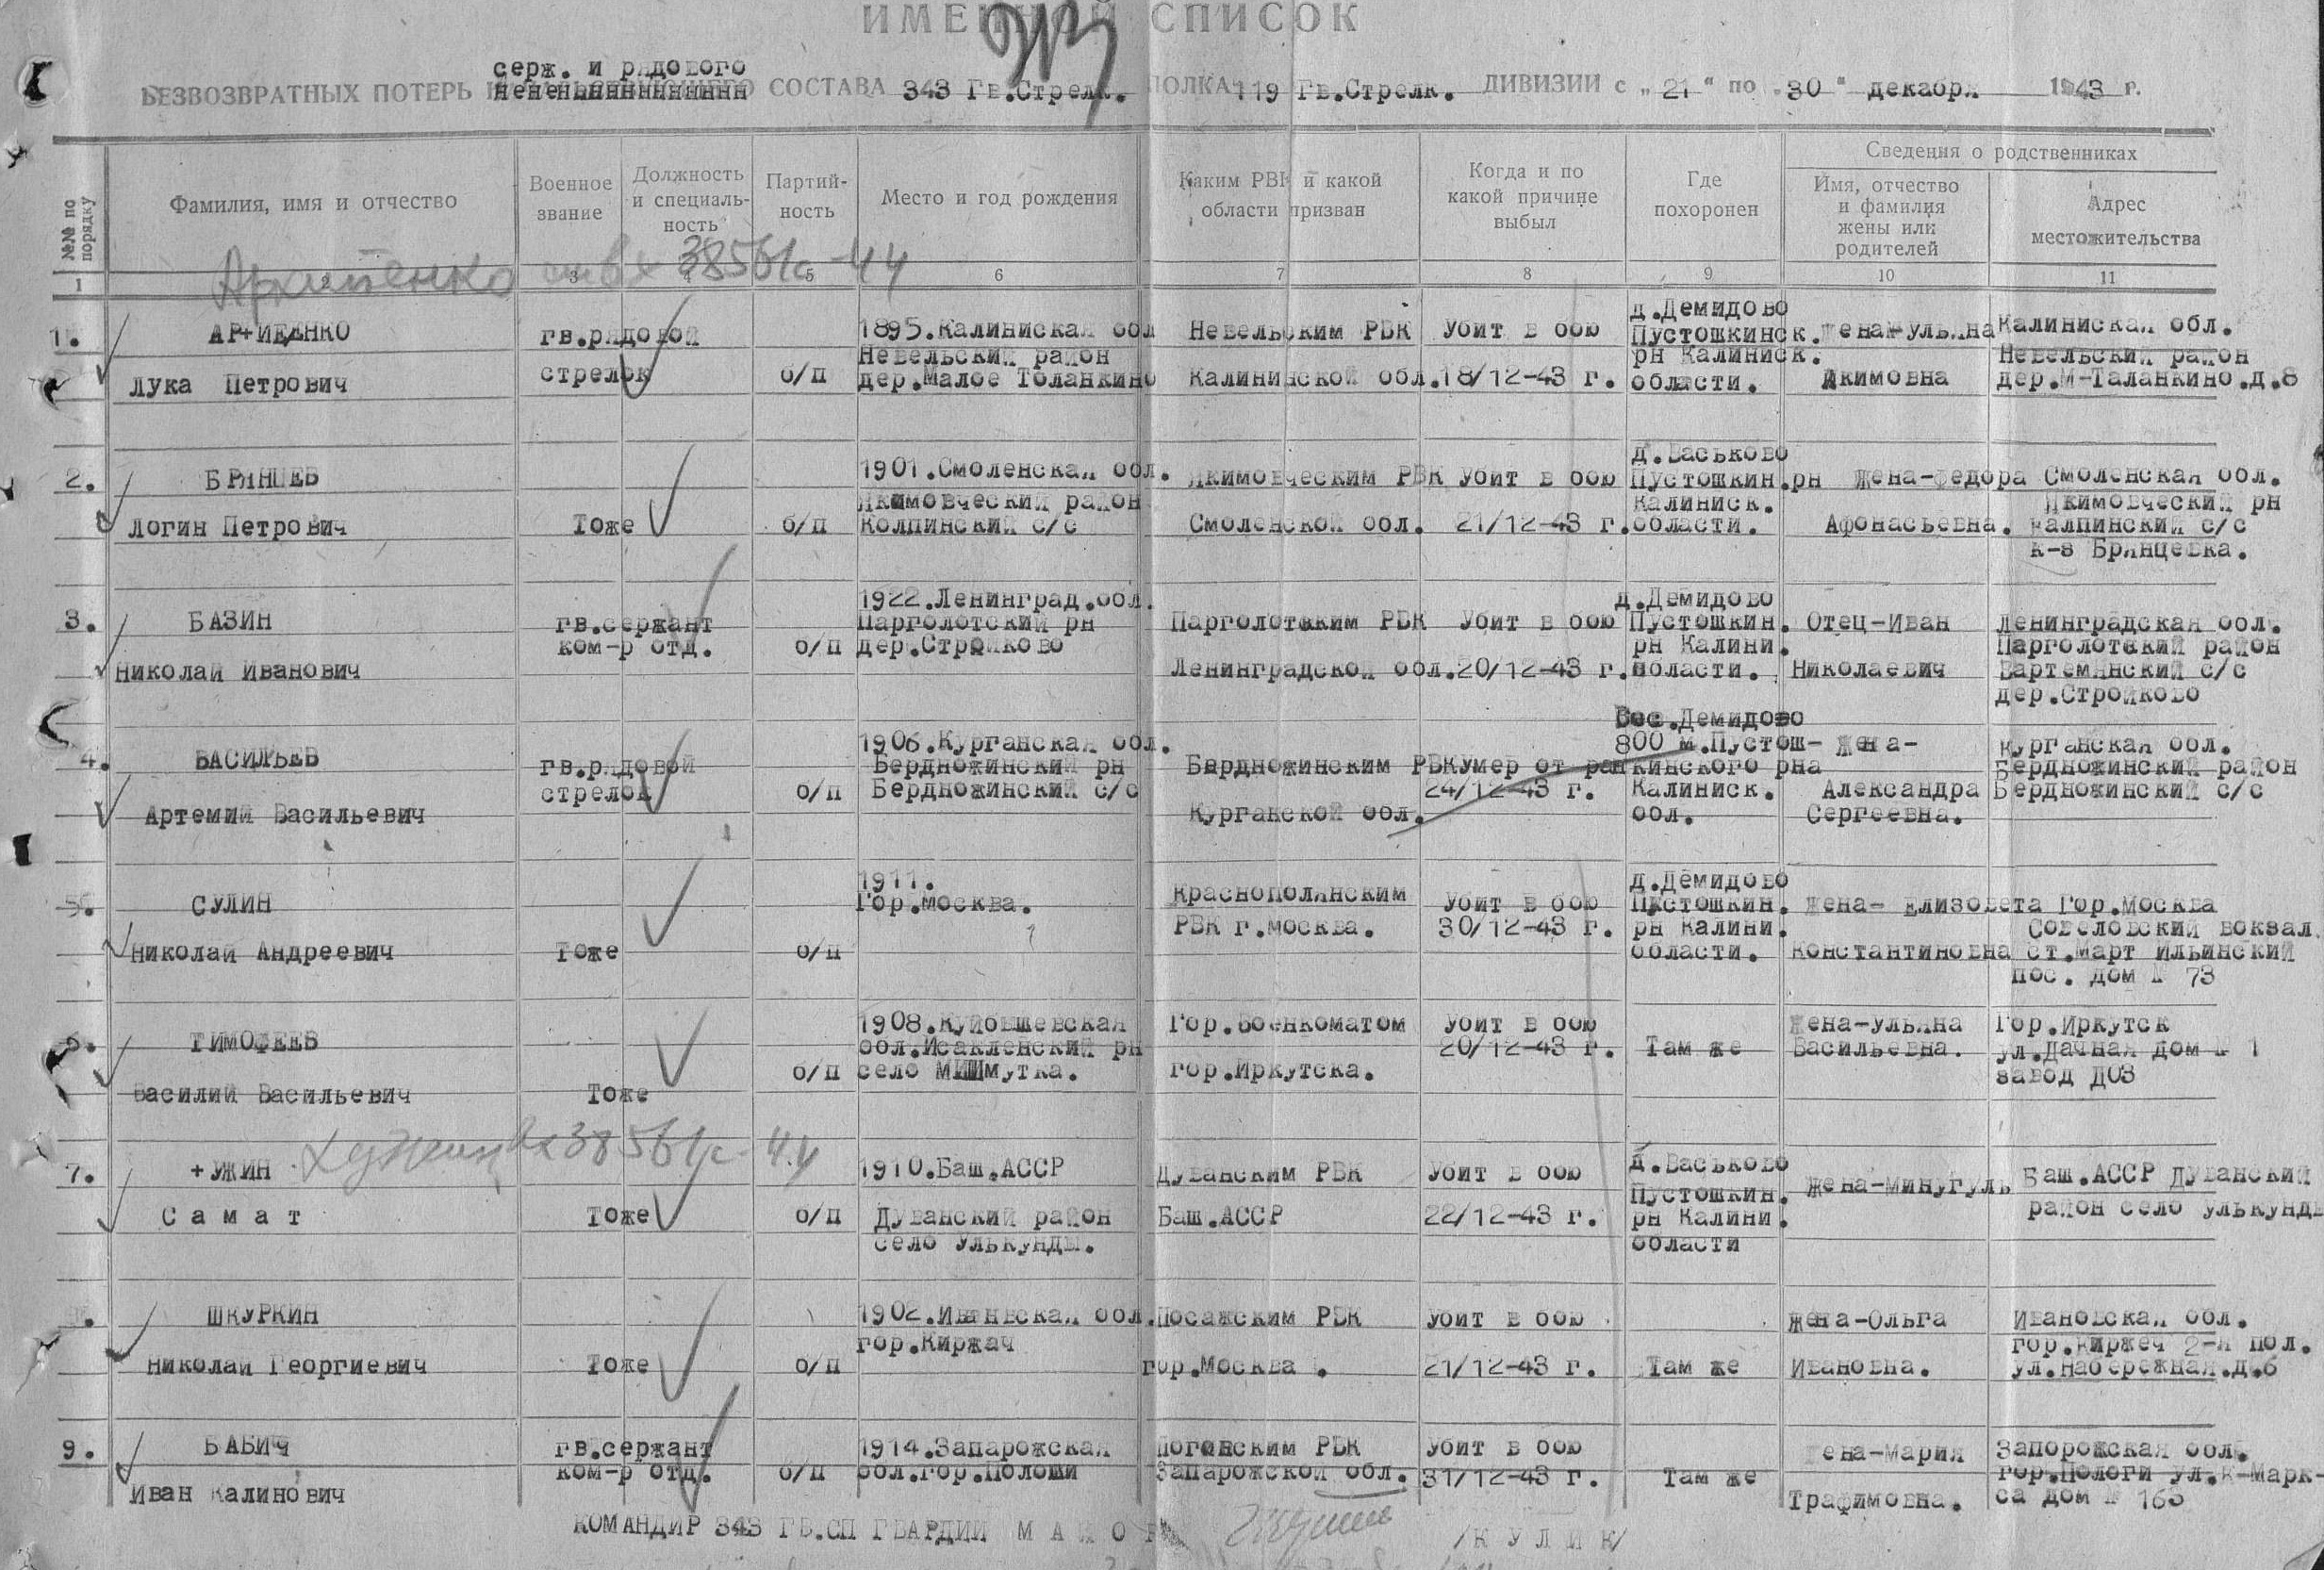 ИМЕННОЙ СПИСОК
серж. и рядового
БЕЗВОЗВРАТНЫХ ПОТЕРЬ СОСТАВА 343 Гв.Стрелк. ПОЛКА 119 Гв.Стрелк. ДИВИЗИИ с „ 21 “ по „ 30 “ декабря 1943 г.
№№ по порядку
Фамилия, имя и отчество
Военное звание
Должность и специаль-ность
Партий-ность
Место и год рождения
Каким РВК и какой области призван
Когда и по какой причине выбыл
Где похоронен
Сведения о родственниках
Имя, отчество и фамилия жены или родителей
Адрес местожительства
Архипенко вх 38561с-44
1 2 3 4 5 6 7 8 9 10 11
1. АР+ИПЕНКО
Лука Петрович
гв.рядовой
стрелок
б/п
1895.Калиниская обл
Невельский район
дер.Малое Толанкино
Невельским РВК
Калининской обл.
Убит в бою
18/12-43 г.
д.Демидово
Пустошкинск.
рн Калиниск.
области.
Жена-Ульяна
Якимовна
Калиниская обл.
Невельский район
дер.М-Таланкино.д.8
2. БРЯНЦЕВ
Логин Петрович
Тоже
б/п
1901.Смоленская обл.
Якимовческий район
Колпинский с/с
Якимовческим РВК
Смоленской обл.
Убит в бою
21/12-43 г.
д.Васьково
Пустошкин.рн
Калиниск.
области.
Жена-Федора
Афонасьевна.
Смоленская обл.
Якимовческий рн
Калпинский с/с
к-з Брянцевка.
3. БАЗИН
Николай Иванович
гв.сержант
ком-р отд.
б/п
1922.Ленинград.обл.
Парголотский рн
дер.Стройково
Парголотским РВК
Ленинградской обл.
Убит в бою
20/12-43 г.
д.Демидово
Пустошкин.
рн Калини.
области.
Отец-Иван
Николаевич
Ленинградская обл.
Парголотский район
Вартемянский с/с
дер.Стройково
4. ВАСИЛЬЕВ
Артемий Васильевич
гв.рядовой
стрелок
б/п
1906.Курганская обл.
Бердножинский рн
Бердножинский с/с
Бердножинским РВК
Курганской обл.
Умер от ран
24/12-43 г.
Вос.Демидово
800 м.Пустош-
кинского рна
Калиниск.
обл.
Жена-
Александра
Сергеевна.
Курганская обл.
Бердножинский район
Бердножинский с/с
5. СУЛИН
Николай Андреевич
Тоже
б/п
1911.
Гор.Москва.
Краснополянским
РВК г.Москва.
Убит в бою
30/12-43 г.
д.Демидово
Пустошкин.
рн Калини.
области.
Жена- Елизовета
Константиновна
Гор.Москва
Совеловский вокзал
ст.Март Ильинский
пос. дом № 73
6. ТИМОФЕЕВ
Василий Васильевич
Тоже
б/п
1908.Куйбышевская
обл.Исакленский рн
село Мишмутка.
Гор.Военкоматом
гор.Иркутска.
Убит в бою
20/12-43 г.
Там же
Жена-Ульяна
Васильевна.
Гор.Иркутск
ул.Дачная дом № 1
завод ДОЗ
Хужин вх 38561с-44
7. +УЖИН
Самат
Тоже
б/п
1910.Баш.АССР
Дуванский район
село Улькунды.
Дуванским РВК
Баш.АССР
Убит в бою
22/12-43 г.
д.Васьково
Пустошкин.
рн Калини.
области
Жена-Минугуль
Баш.АССР Дуванский
район село Улькунды
ШКУРКИН
Николай Георгиевич
Тоже
б/п
1902.Ивановская обл.
гор.Киржач
Посажским РВК
гор.Москва .
Убит в бою
21/12-43 г.
Там же
Жена-Ольга
Ивановна.
Ивановская обл.
гор.Киржеч 2-я пол.
ул.Набережная.д.6
9. БАБИЧ
Иван Калинович
гв.сержант
ком-р отд.
б/п
1914.Запарожская
обл.гор.Пологи
Погонским РВК
Запарожской обл.
Убит в бою
31/12-43 г.
Там же
Жена-Мария
Трафимовна.
Запорожская обл.
гор.Пологи ул.К-Марк-
са дом № 163
КОМАНДИР 343 ГВ.СП ГВАРДИИ МАЙОР /КУЛИК/